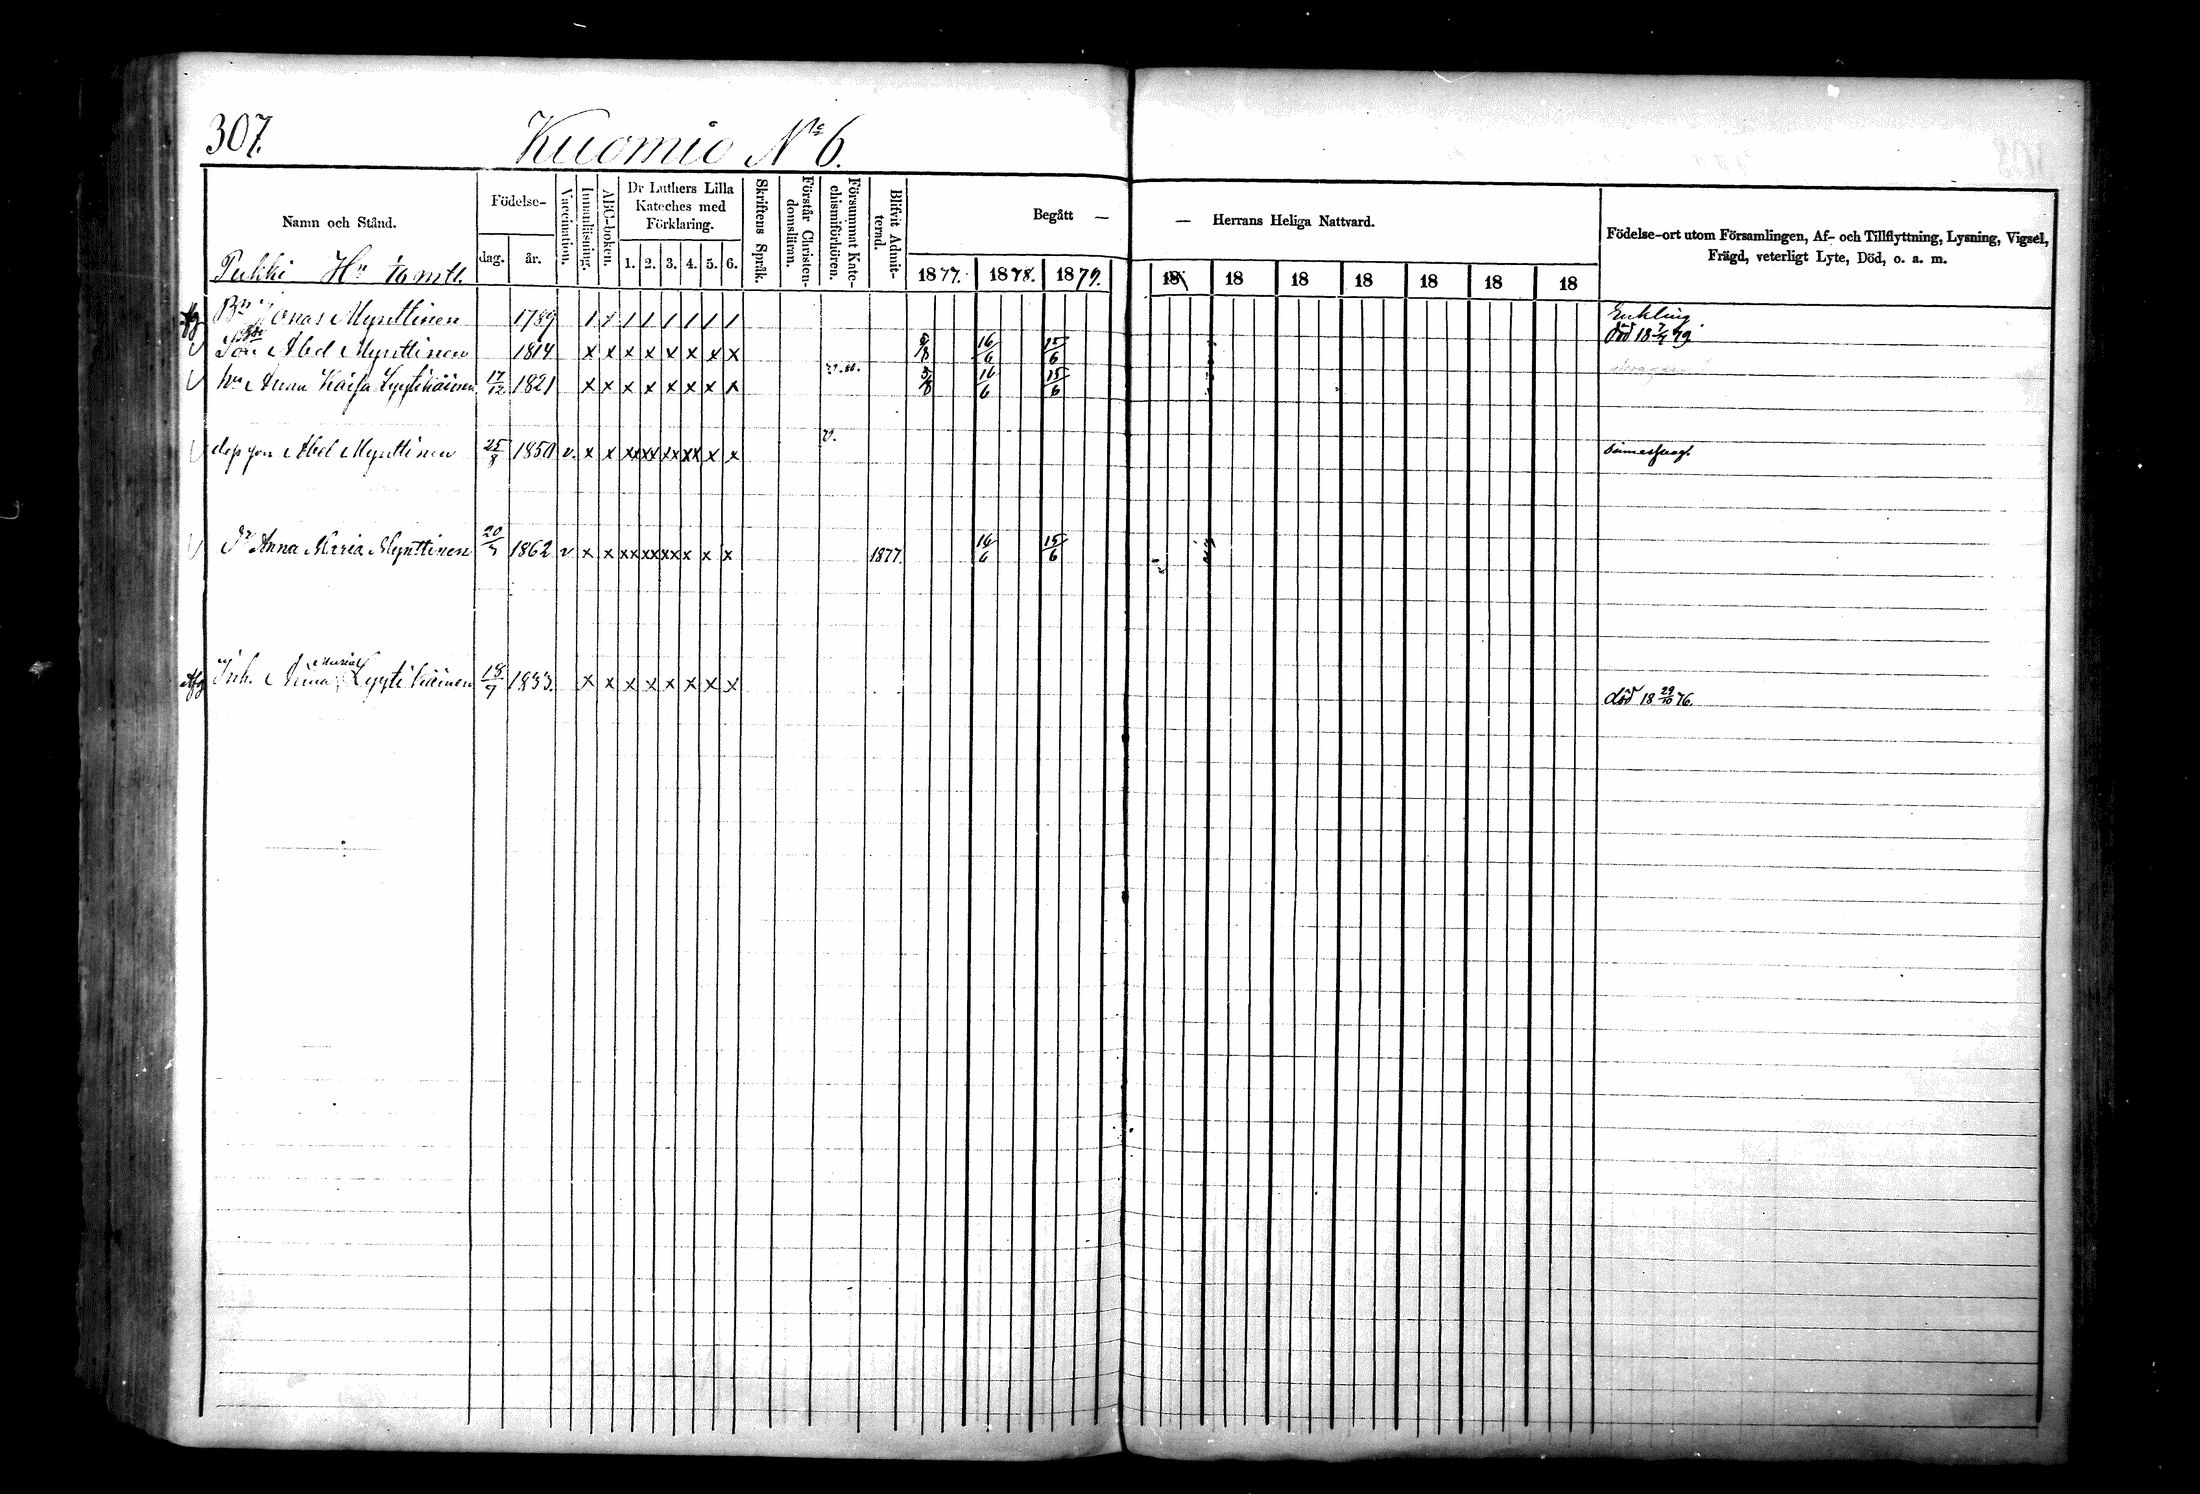 307.
Kuomio No 6.
Namn och Stånd.
Födelse-
dag. år.
Vaccination.
Innanläsning.
ABC-boken.
Dr Luthers Lilla Kateches med Förklaring.
1. 2. 3. 4. 5. 6.
Skriftens Språk.
Förstår Christendomsläran.
Försummat Katechismiförhören.
Blifvit Admitterad.
Begått —
— Herrans Heliga Nattvard.
1877. 1878. 1879. 18 18 18 18 18 18 18
Födelse-ort utom Församlingen, Af- och Tillflyttning, Lysning, Vigsel, Frägd, veterligt Lyte, Död, o. a. m.
Pukki Hn
Jonas Mynttinen 1789 / / / / / / / / Enkling
död 18 7/4 79
Son Abel Mynttinen 1814 x x x x x x x x 5/8 16/6 15/6
hu Anna Kaisa Lyytikäinen 17/12 1821 x x x x x x x x 5/8 16/6 15/6
Abel Mynttinen 25/8 1850 v. x x xx xx xx xx x x v.
Dr Anna Maria Mynttinen 1862 v x x xx xx xx x x x 1877. 16/6 15/6
Inh. Anna Lyytikäinen 18/7 1833. x x x x x x x x
död 18 29/10 76.